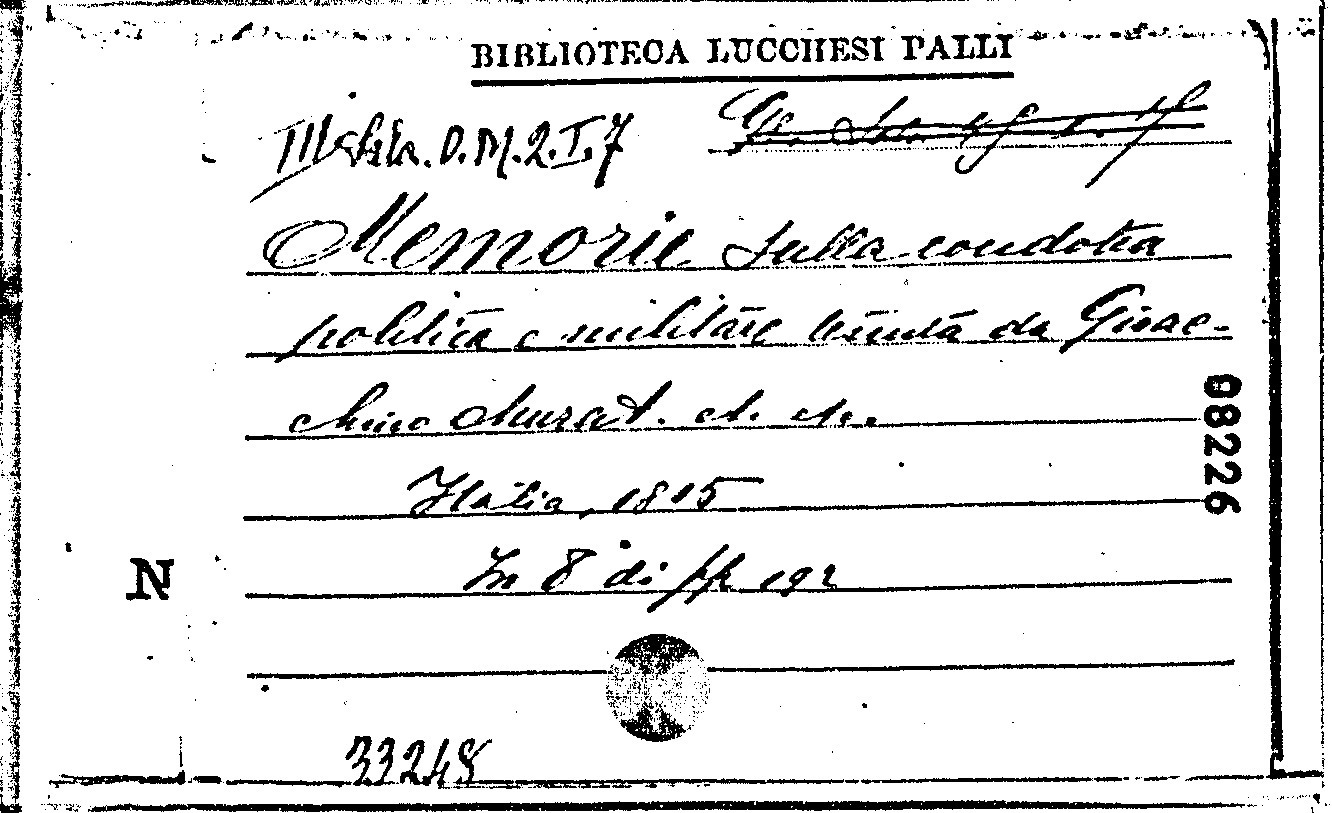 BIBLIOTECA LUCCHESI PALLI
III Sala. D.M.2.I.7
Memorie sulla condotta
politica e militare tenuta da Gioac-
chino Murat.
Italia, 1815
In 8 di pp 192
98226
N
33248